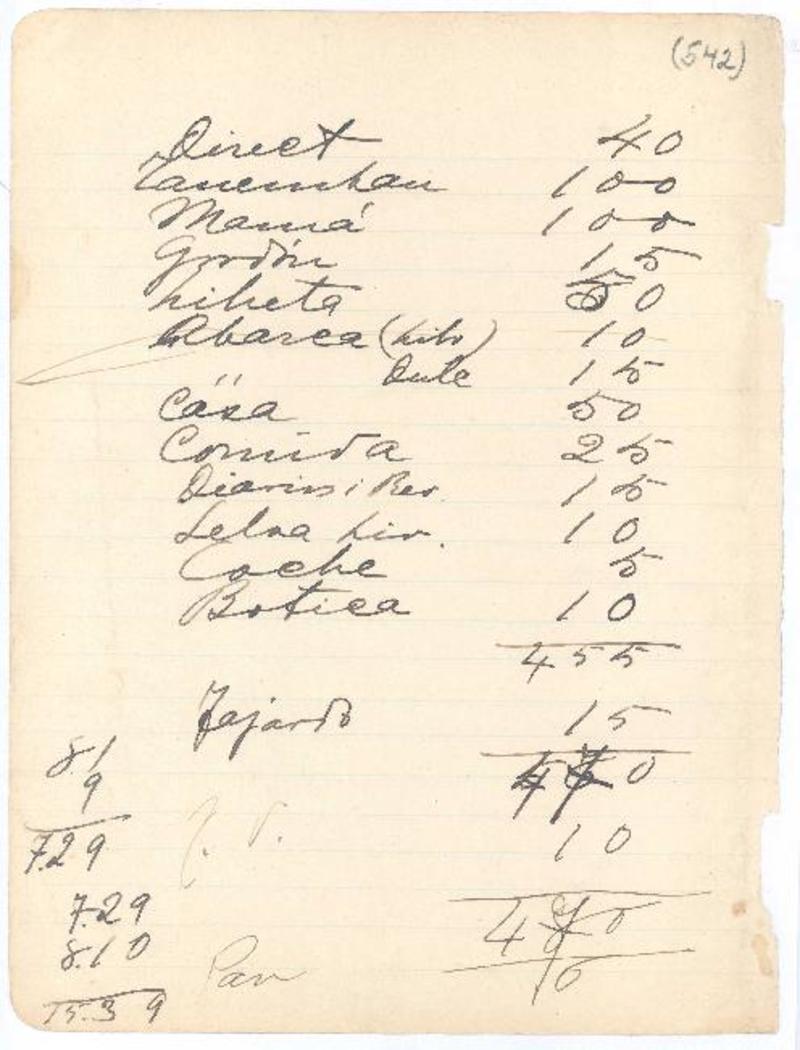 (542)
Direct 40
100
Mamá 100
Gordón 15
50
Abarca ( ) 10
15
Casa 50
Comida 25
Diarios i Rev. 15
Selva Lir. 10
Coche 5
Botica 10
455
Fajardo 15
8.1
9
7.29
470
10
7.29
8.10
15.39
Pan